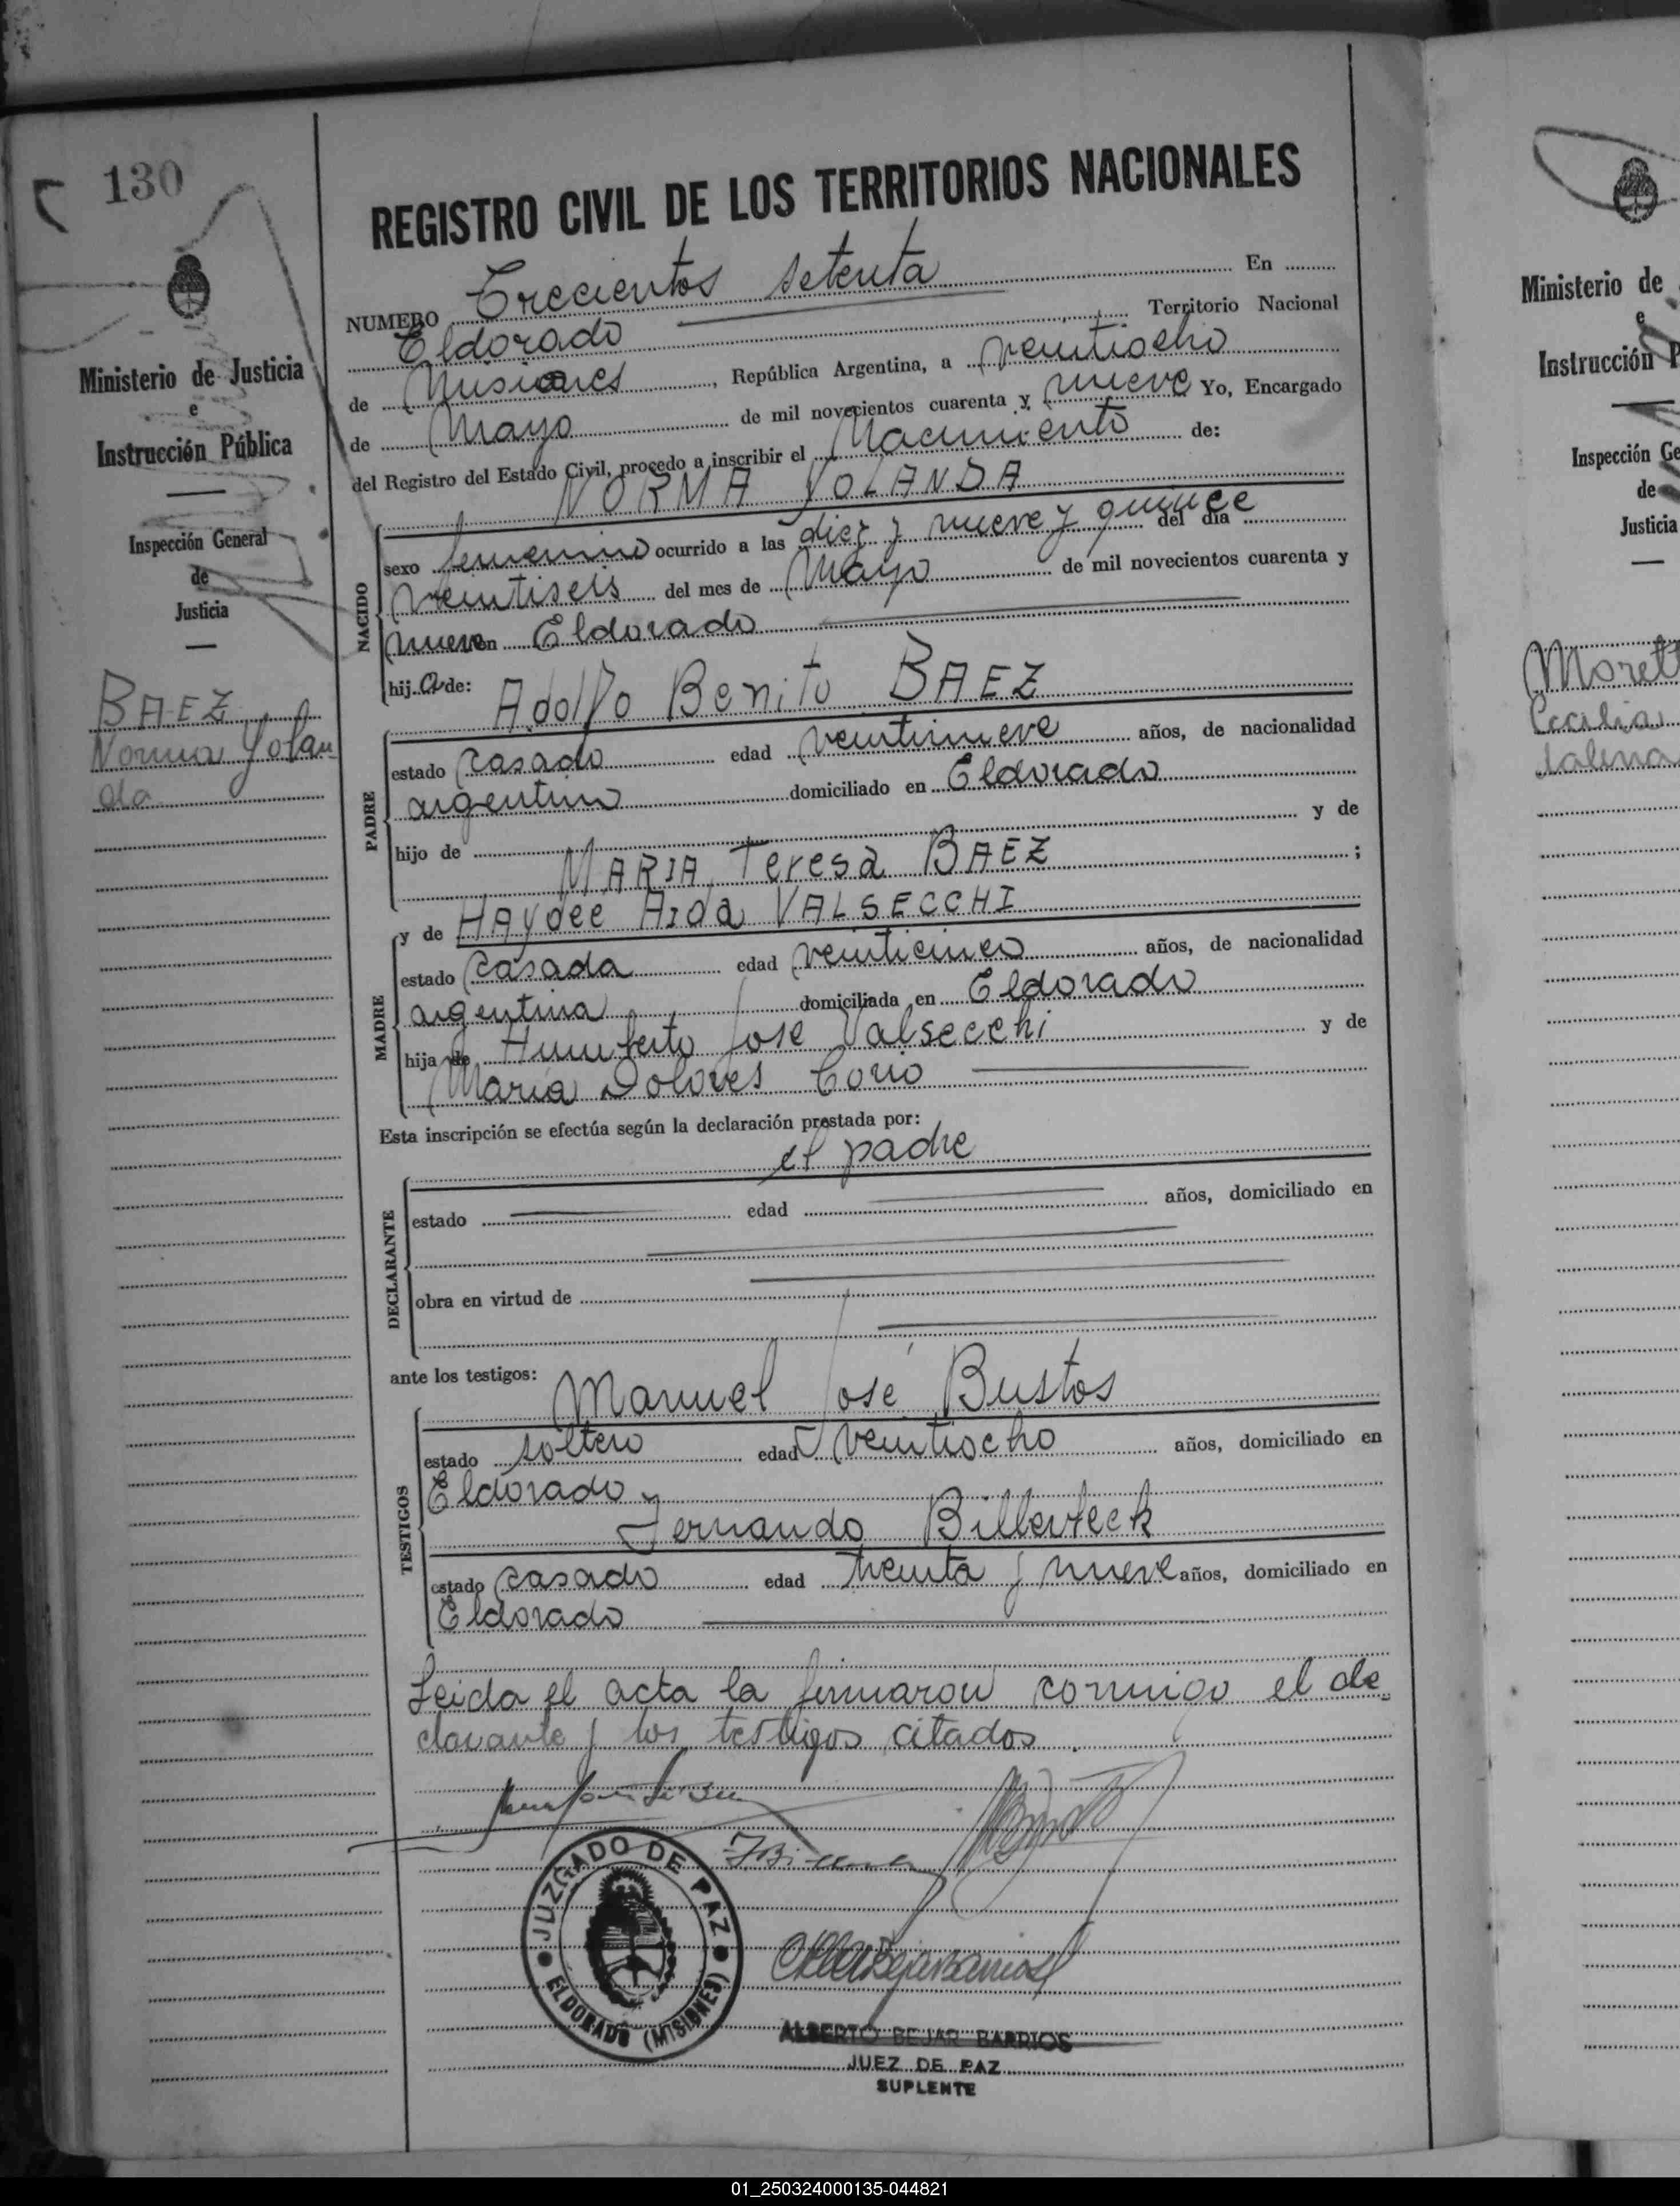 130
REGISTRO CIVIL DE LOS TERRITORIOS NACIONALES
NUMERO Trecientos setenta En
Eldorado Territorio Nacional
de Misiones, República Argentina, a veintiocho
de Mayo de mil novecientos cuarenta y nueve Yo, Encargado
del Registro del Estado Civil, procedo a inscribir el Nacimiento de:
NORMA YOLANDA
NACIDO
sexo femenino ocurrido a las diez y nueve y quince del día
veintiseis del mes de Mayo de mil novecientos cuarenta y
nueve en Eldorado
hija de: Adolfo Benito BAEZ
PADRE
estado casado edad veintinueve años, de nacionalidad
argentino domiciliado en Eldorado
hijo de y de
MARIA Teresa BAEZ ;
y de HAydee Aida VALSECCHI
MADRE
estado casada edad veinticinco años, de nacionalidad
argentina domiciliada en Eldorado
hija de Humberto Jose Valsecchi y de
Maria Dolores
Esta inscripción se efectúa según la declaración prestada por:
el padre
DECLARANTE
estado edad años, domiciliado en
obra en virtud de
ante los testigos:
Manuel José Bustos
TESTIGOS
estado soltero edad veintiocho años, domiciliado en
Eldorado y
Fernando
estado casado edad treinta y nueve años, domiciliado en
Eldorado
Leida el acta la firmaron conmigo el de-
clarante y los testigos citados.
JUZGADO DE PAZ
ELDORADO (MISIONES)
ALBERTO BEJAR BARRIOS
JUEZ DE PAZ
SUPLENTE
Ministerio de Justicia
e
Instrucción Pública
Inspección General
de
Justicia
BAEZ
Norma Yolan-
da
Ministerio de
e
Instrucción P
Inspección Ge
de
Justicia
Morett
Cecilia
01_250324000135-044821